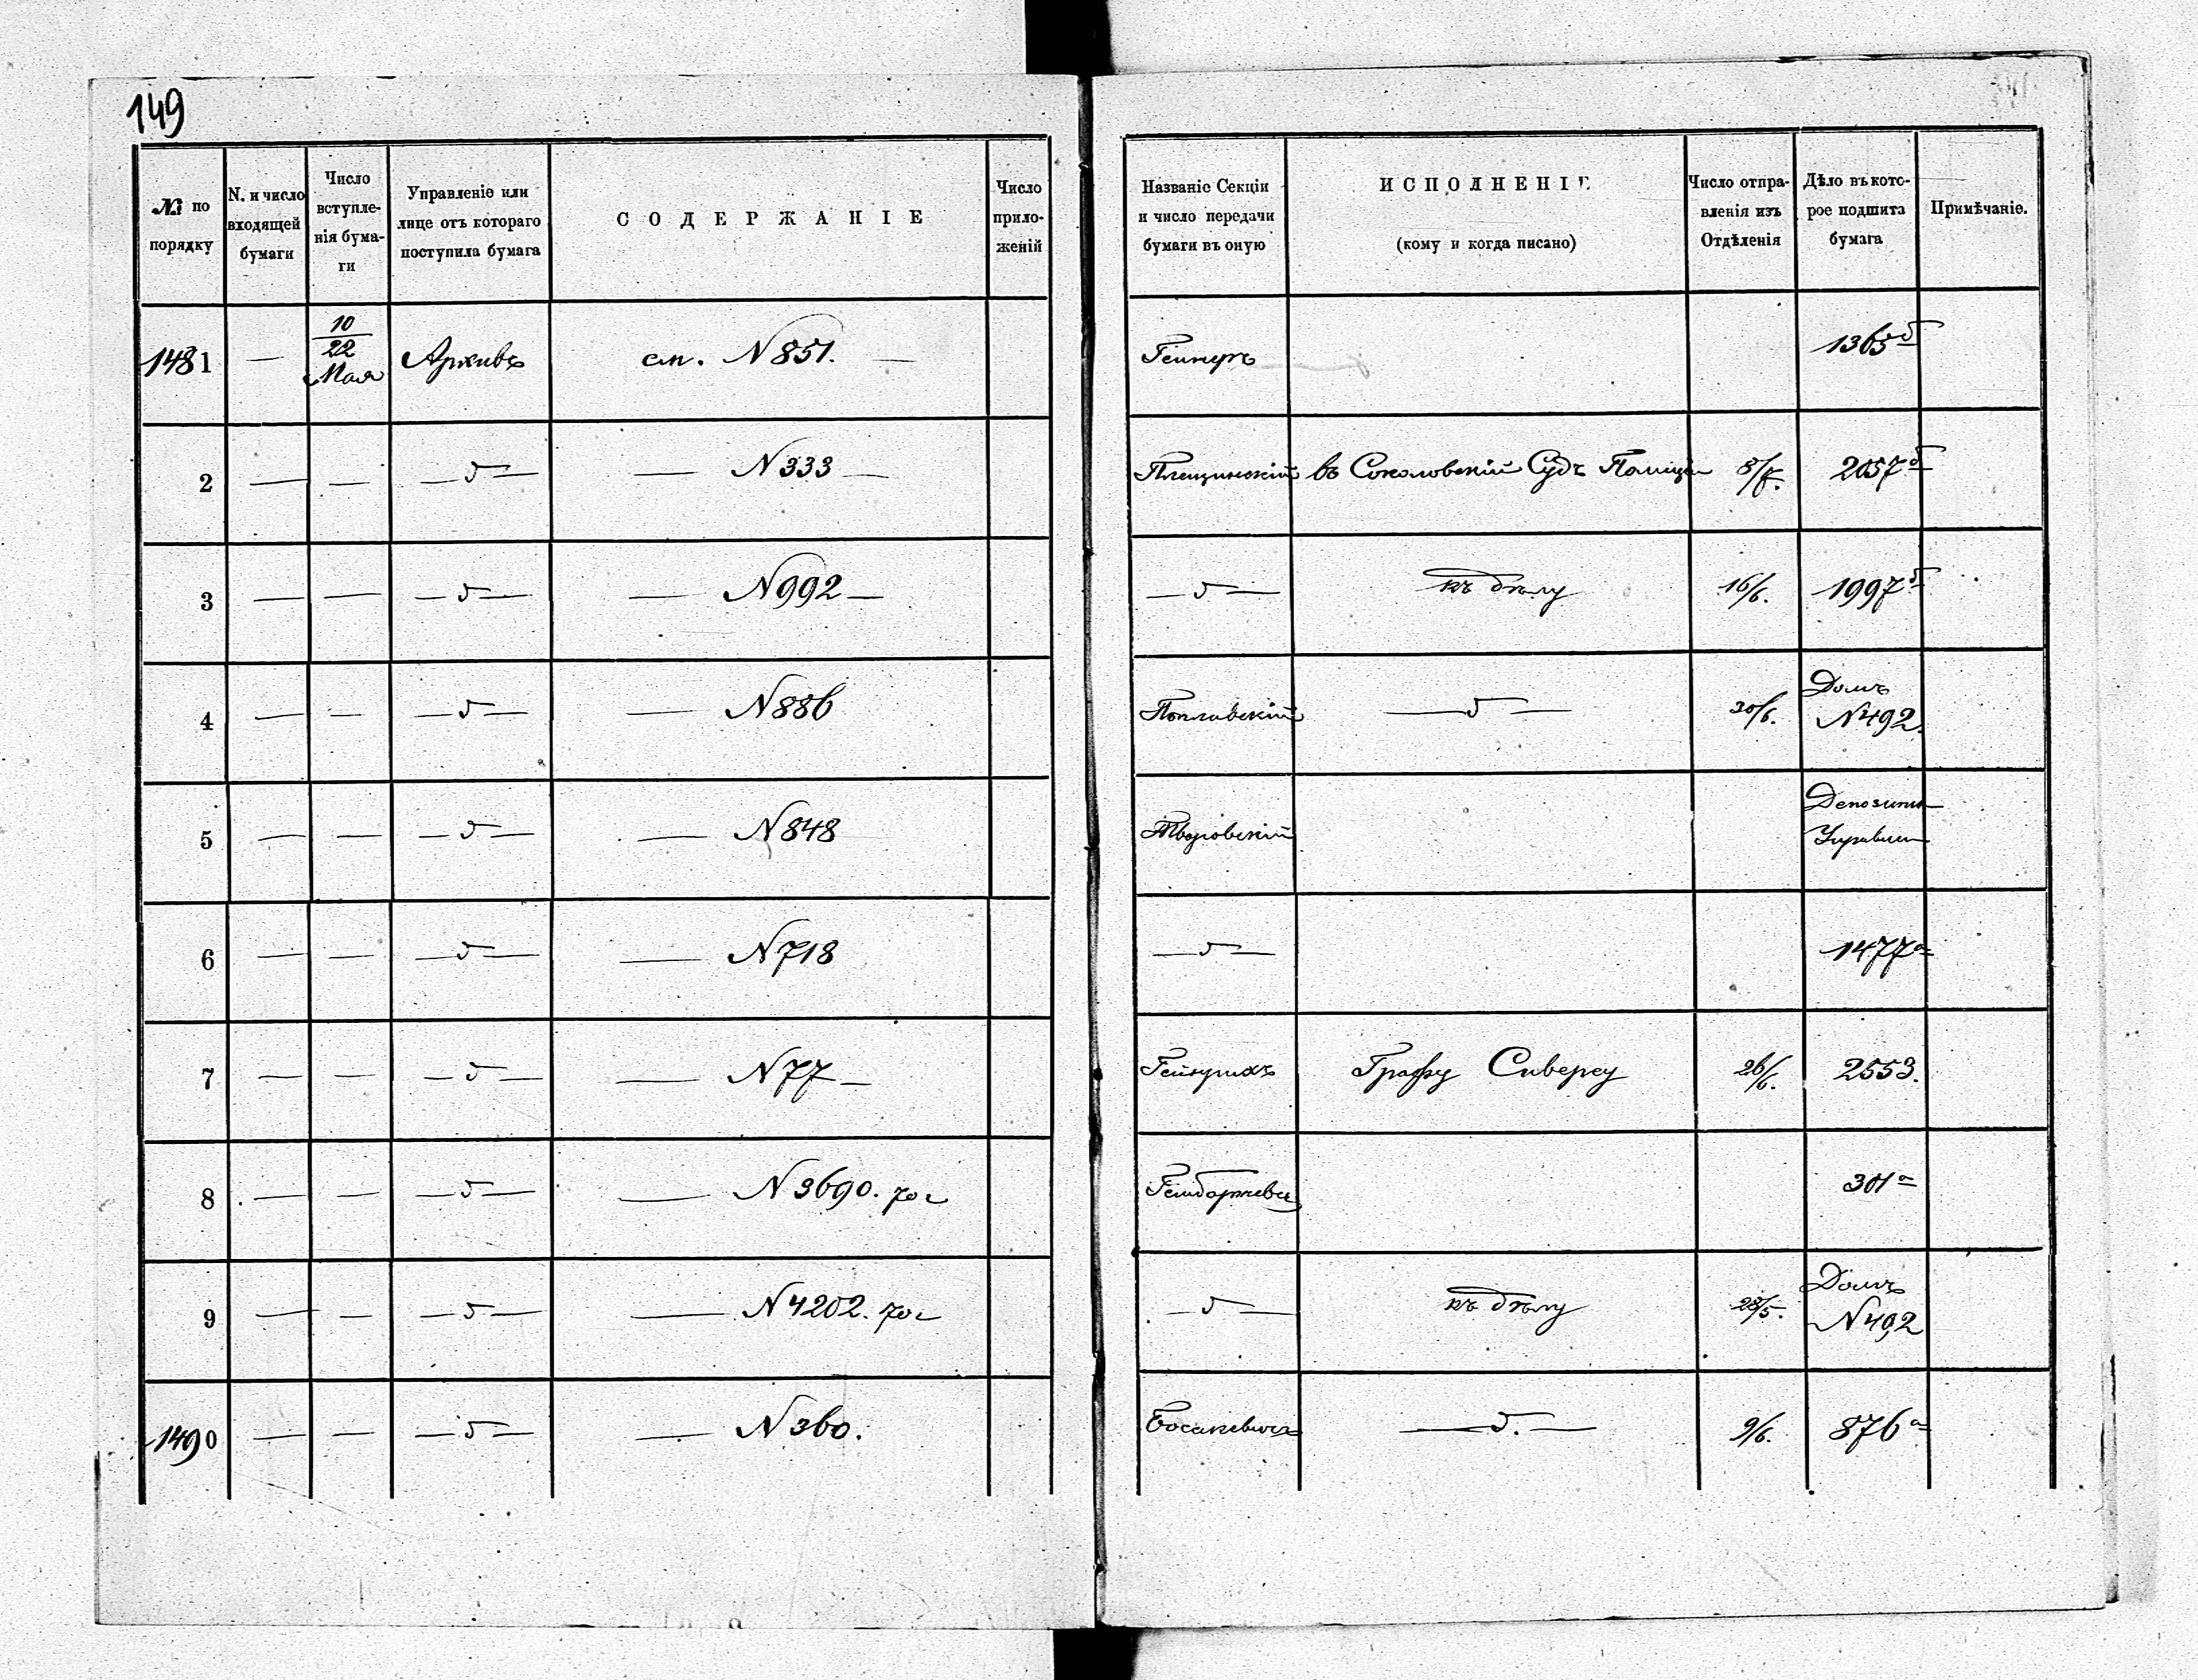 149
№ по порядку | N. и число входящей бумаги | Число вступленія бумаги | Управленіе или лице отъ котораго поступила бумага | СОДЕРЖАНІЕ | Число приложеній | Названіе Секціи и число передачи бумаги въ оную | ИСПОЛНЕНІЕ (кому и когда писано) | Число отправленія изъ Отдѣленія | Дѣло въ которое подшита бумага | Примѣчаніе.
1481 | — | 10/22 Мая | Архивъ | см. N 851. — | | | | | 1365 б
2 | — | — | — " — | — N 333 — | | Плещинскій | въ Соколовскій Судъ Полиціи | | 2057 б
3 | — | — | — " — | — N 992 — | | — " — | къ дѣлу | 16/6. | 1997 б
4 | — | — | — " — | — N 886 | | Поплавскій | — " — | 30/6. | Домъ N 492.
5 | — | — | — " — | — N 848 | | | | |
6 | — | — | — " — | — N 718 | | — " — | | | 1477 а
7 | — | — | — " — | — N 77 — | | | Графу Сиверсу | 26/6. | 2553.
8 | — | — | — " — | — N 3690. 70 г | | | | | 301 а
9 | — | — | — " — | — N 4202. 70 г | | — " — | къ дѣлу | 28/5. | Домъ N 492
1490 | — | — | — " — | — N 360. | | Босакевичъ | — " — | 9/6. | 876 а